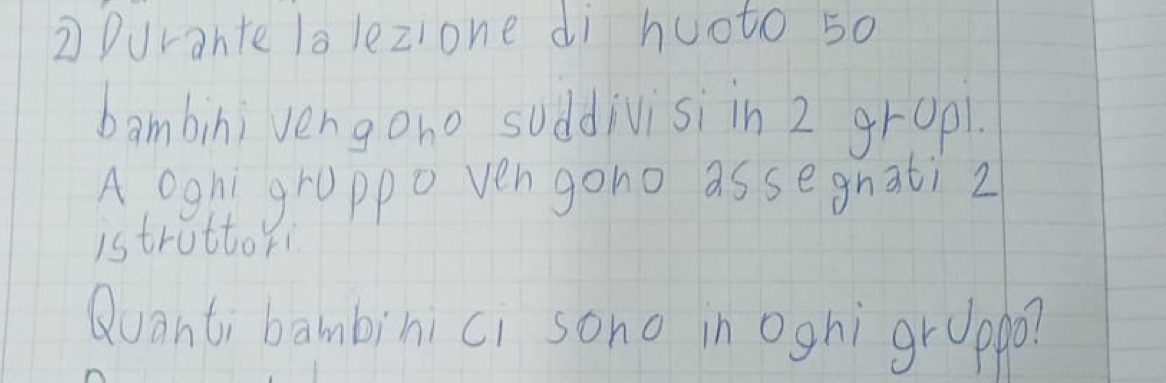 2) Durante la lezione di nuoto 50
bambini vengono suddivisi in 2 grupi.
A ogni gruppo vengono assegnati 2
istruttori
Quanti bambini ci sono in ogni gruppo?